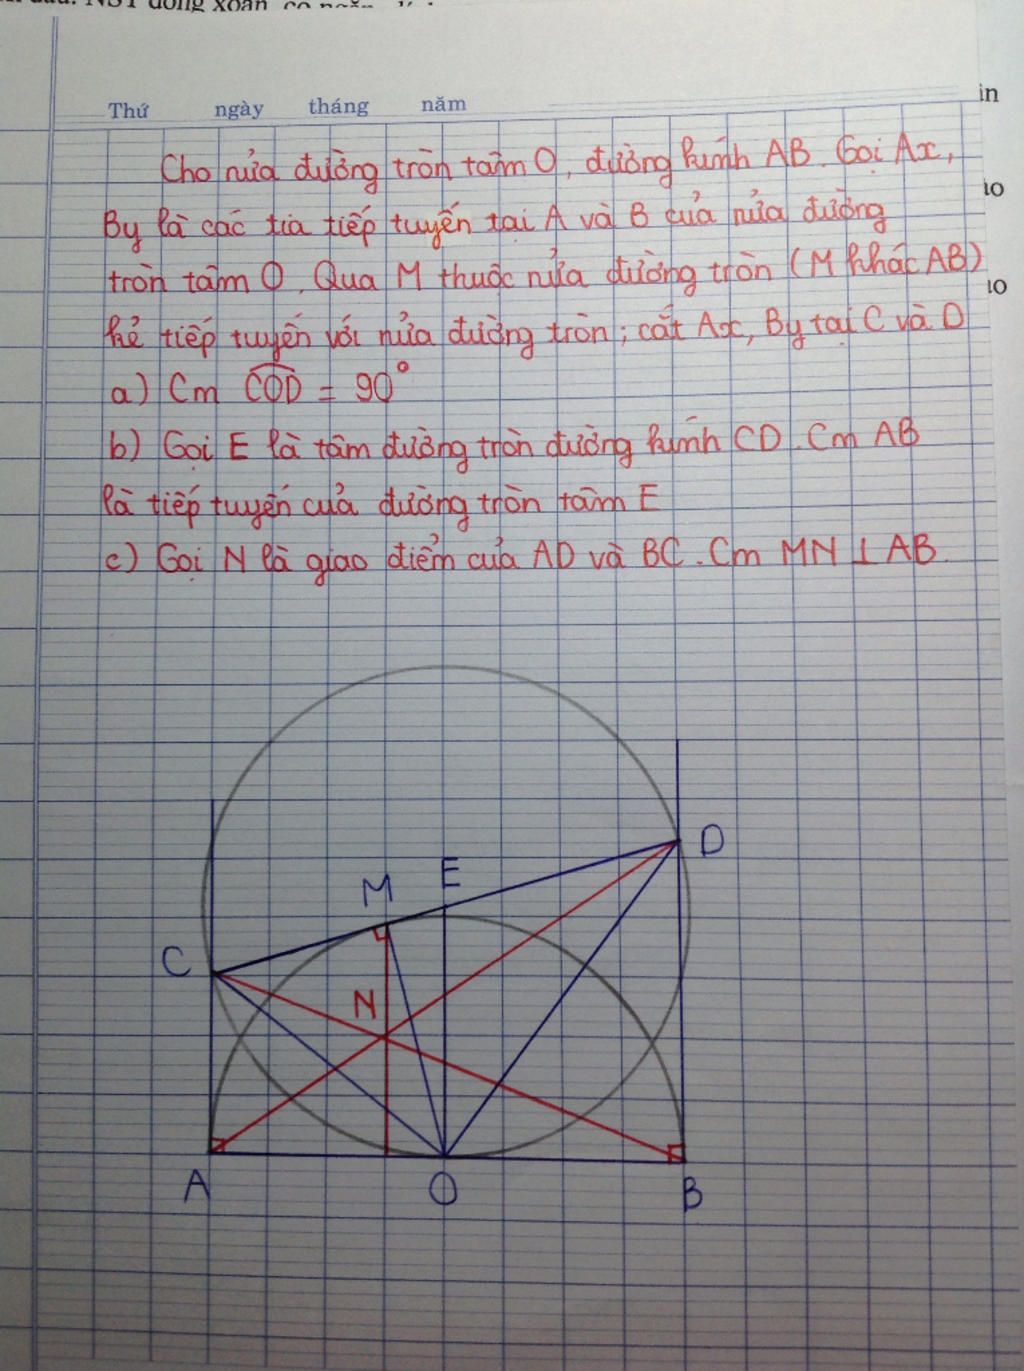 Thứ ngày tháng năm
in
Cho nửa đường tròn tâm O, đường kính AB. Gọi Ax,
10
By là các tia tiếp tuyến tại A và B của nửa đường
tròn tâm O. Qua M thuộc nửa đường tròn (M khác AB)
10
kẻ tiếp tuyến với nửa đường tròn; cắt Ax, By tại C và D
a) Cm COD = 90°
b) Gọi E là tâm đường tròn đường kính CD. Cm AB
là tiếp tuyến của đường tròn tâm E
c) Gọi N là giao điểm của AD và BC. Cm MN ⊥ AB.
D
E
M
C
N
A O B